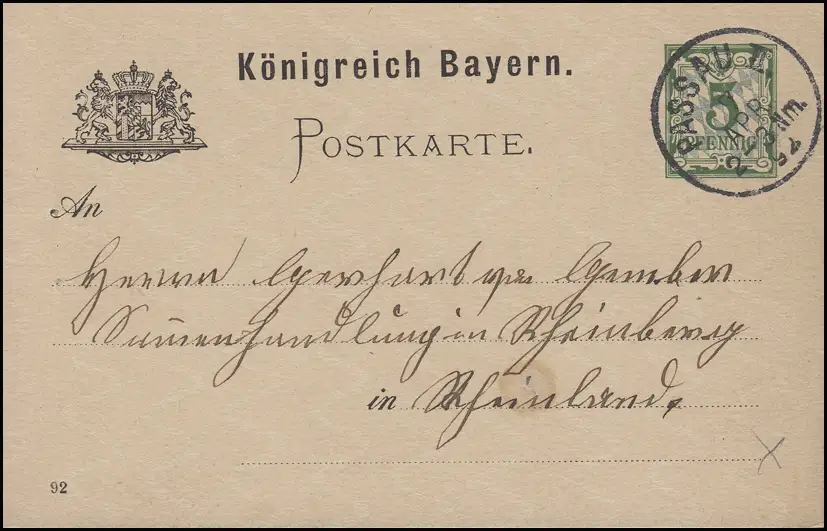 Königreich Bayern.
POSTKARTE.
5
PFENNIG
PASSAU II.
APR
2-3 Nm.
An
Herrn Gerhart
Samenhandlung in Rheinberg
in Rheinland.
92